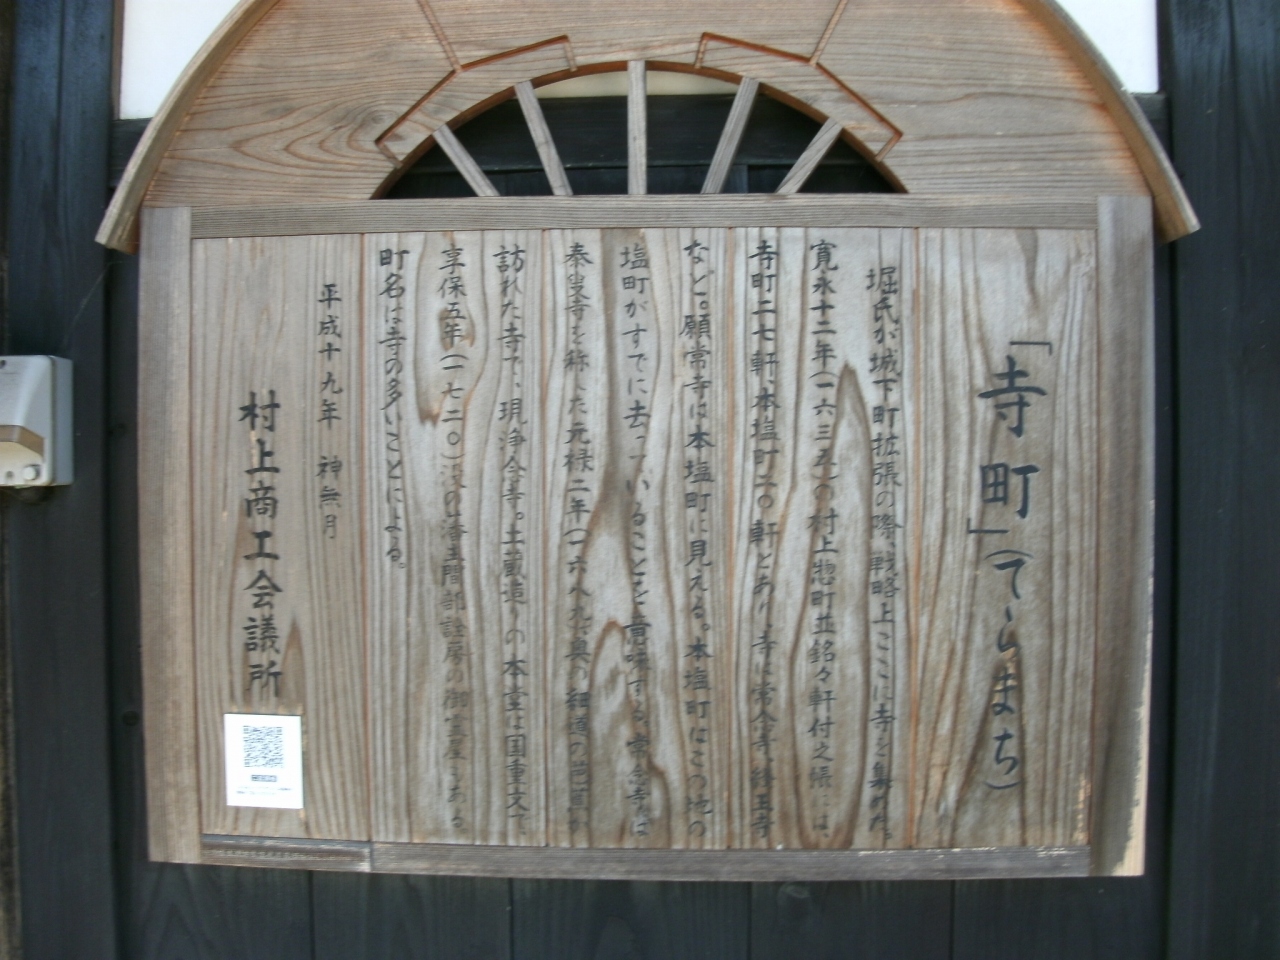 「寺町」(てらまち)
堀氏が城下町拡張の際、戦略上ここに寺を集めた。
寛永十二年(一六三五)の村上惣町並銘々軒付之帳には、
寺町二七軒、本塩町二〇軒とあり、寺に常念寺、経王寺
など。願常寺は本塩町に見える。本塩町はこの地の
塩町がすでに去っていることを意味する。常念寺は
泰叟寺を称した元禄二年(一六八九)奥の細道の芭蕉が
訪れた寺で、現浄念寺。土蔵造りの本堂は国重文で、
享保五年(一七二〇)没の藩主間部詮房の御霊屋もある。
町名は寺の多いことによる。
平成十九年 神無月
村上商工会議所